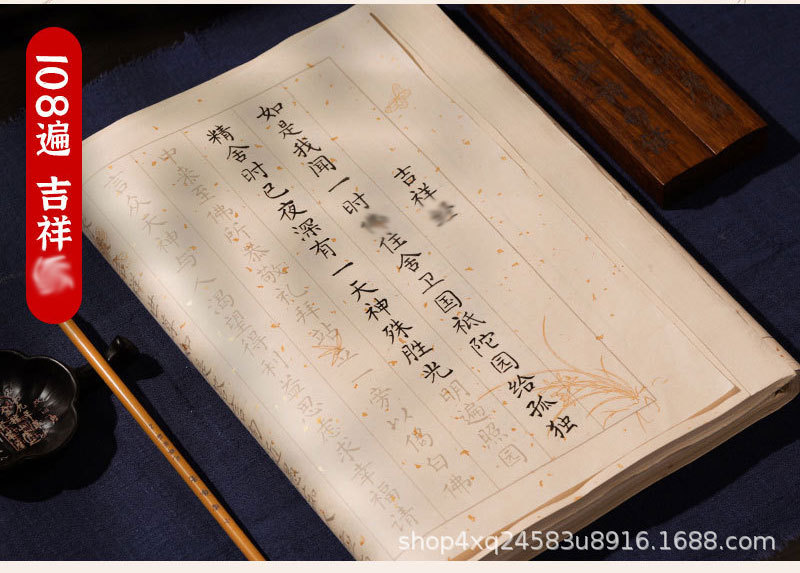 108遍 吉祥
吉祥
如是我闻一时住舍卫国祇陀园给孤独
精舍时已夜深有一天神殊胜光明遍照园
中来至佛所恭敬礼拜站立一旁以偈白佛
言众天神与人渴望得利益思虑求幸福请
shop4xq24583u8916.1688.com